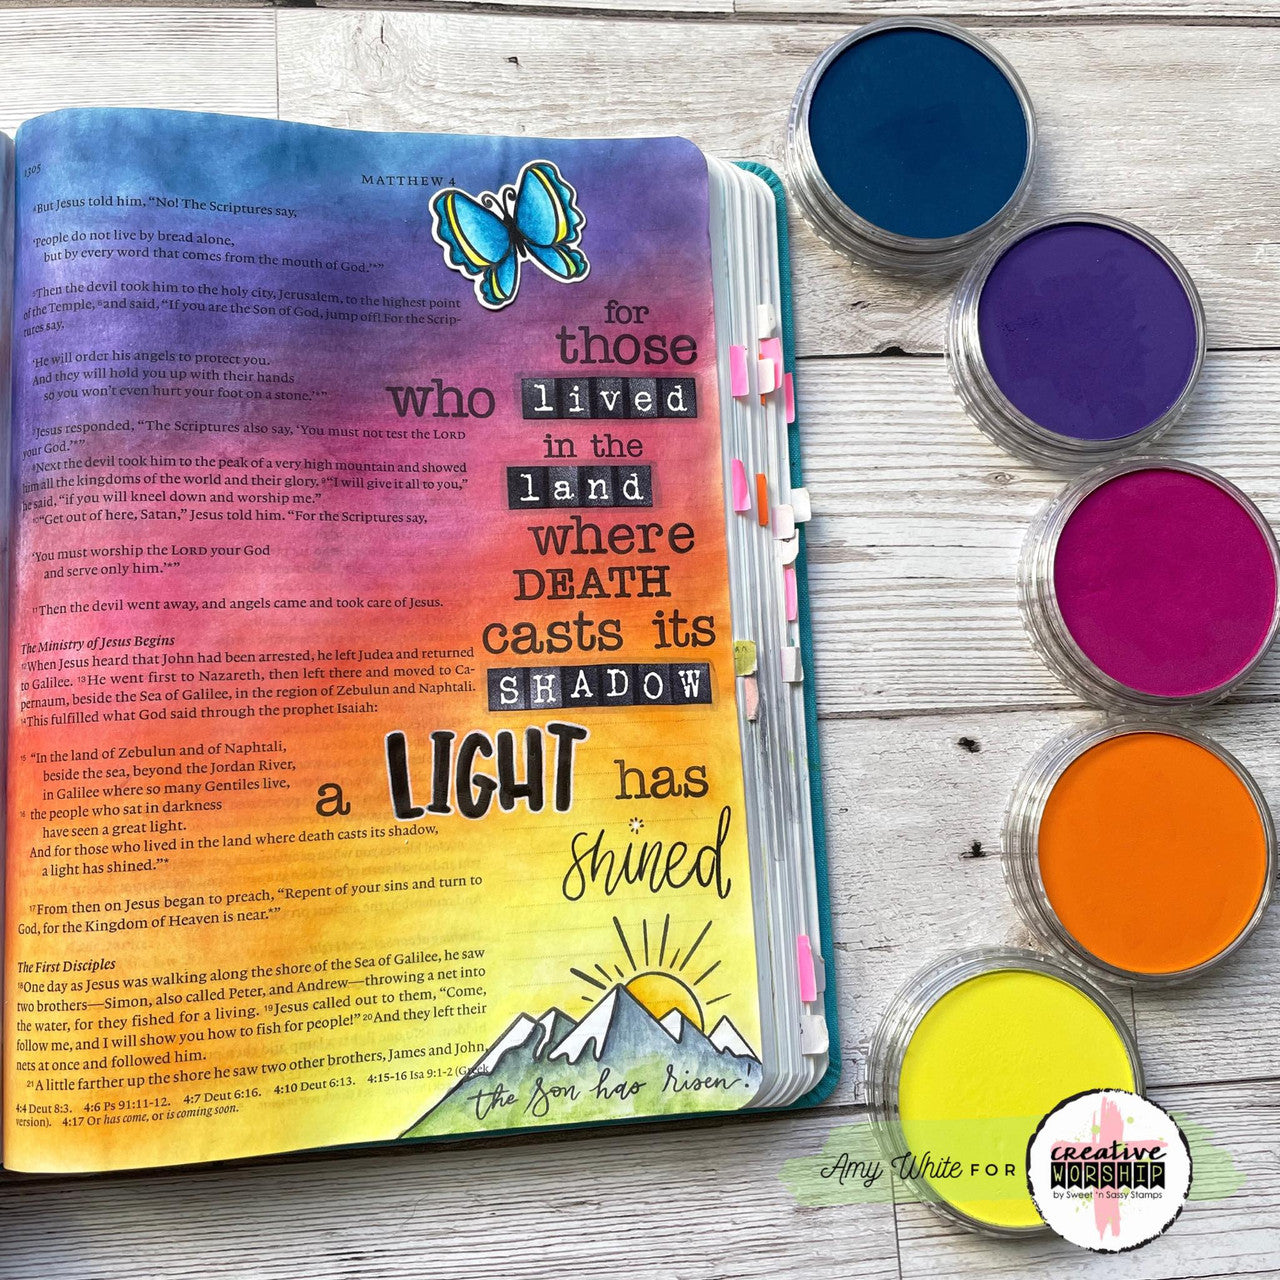 1305
MATTHEW 4
4But Jesus told him, “No! The Scriptures say,
‘People do not live by bread alone,
but by every word that comes from the mouth of God.’*”
5Then the devil took him to the holy city, Jerusalem, to the highest point
of the Temple, 6and said, “If you are the Son of God, jump off! For the Scrip-
tures say,
‘He will order his angels to protect you.
And they will hold you up with their hands
so you won’t even hurt your foot on a stone.’*”
7Jesus responded, “The Scriptures also say, ‘You must not test the LORD
your God.’*”
8Next the devil took him to the peak of a very high mountain and showed
him all the kingdoms of the world and their glory. 9“I will give it all to you,”
he said, “if you will kneel down and worship me.”
10“Get out of here, Satan,” Jesus told him. “For the Scriptures say,
‘You must worship the LORD your God
and serve only him.’*”
11Then the devil went away, and angels came and took care of Jesus.
The Ministry of Jesus Begins
12When Jesus heard that John had been arrested, he left Judea and returned
to Galilee. 13He went first to Nazareth, then left there and moved to Ca-
pernaum, beside the Sea of Galilee, in the region of Zebulun and Naphtali.
14This fulfilled what God said through the prophet Isaiah:
15 “In the land of Zebulun and of Naphtali,
beside the sea, beyond the Jordan River,
in Galilee where so many Gentiles live,
16 the people who sat in darkness
have seen a great light.
And for those who lived in the land where death casts its shadow,
a light has shined.”*
17From then on Jesus began to preach, “Repent of your sins and turn to
God, for the Kingdom of Heaven is near.*”
The First Disciples
18One day as Jesus was walking along the shore of the Sea of Galilee, he saw
two brothers—Simon, also called Peter, and Andrew—throwing a net into
the water, for they fished for a living. 19Jesus called out to them, “Come,
follow me, and I will show you how to fish for people!” 20And they left their
nets at once and followed him.
21A little farther up the shore he saw two other brothers, James and John,
4:4 Deut 8:3. 4:6 Ps 91:11-12. 4:7 Deut 6:16. 4:10 Deut 6:13. 4:15-16 Isa 9:1-2 (Greek
version). 4:17 Or has come, or is coming soon.
for
those
who lived
in the
land
where
DEATH
casts its
SHADOW
a LIGHT has
shined
the Son has risen!
Amy White FOR
creative
WORSHIP
by Sweet 'n Sassy Stamps